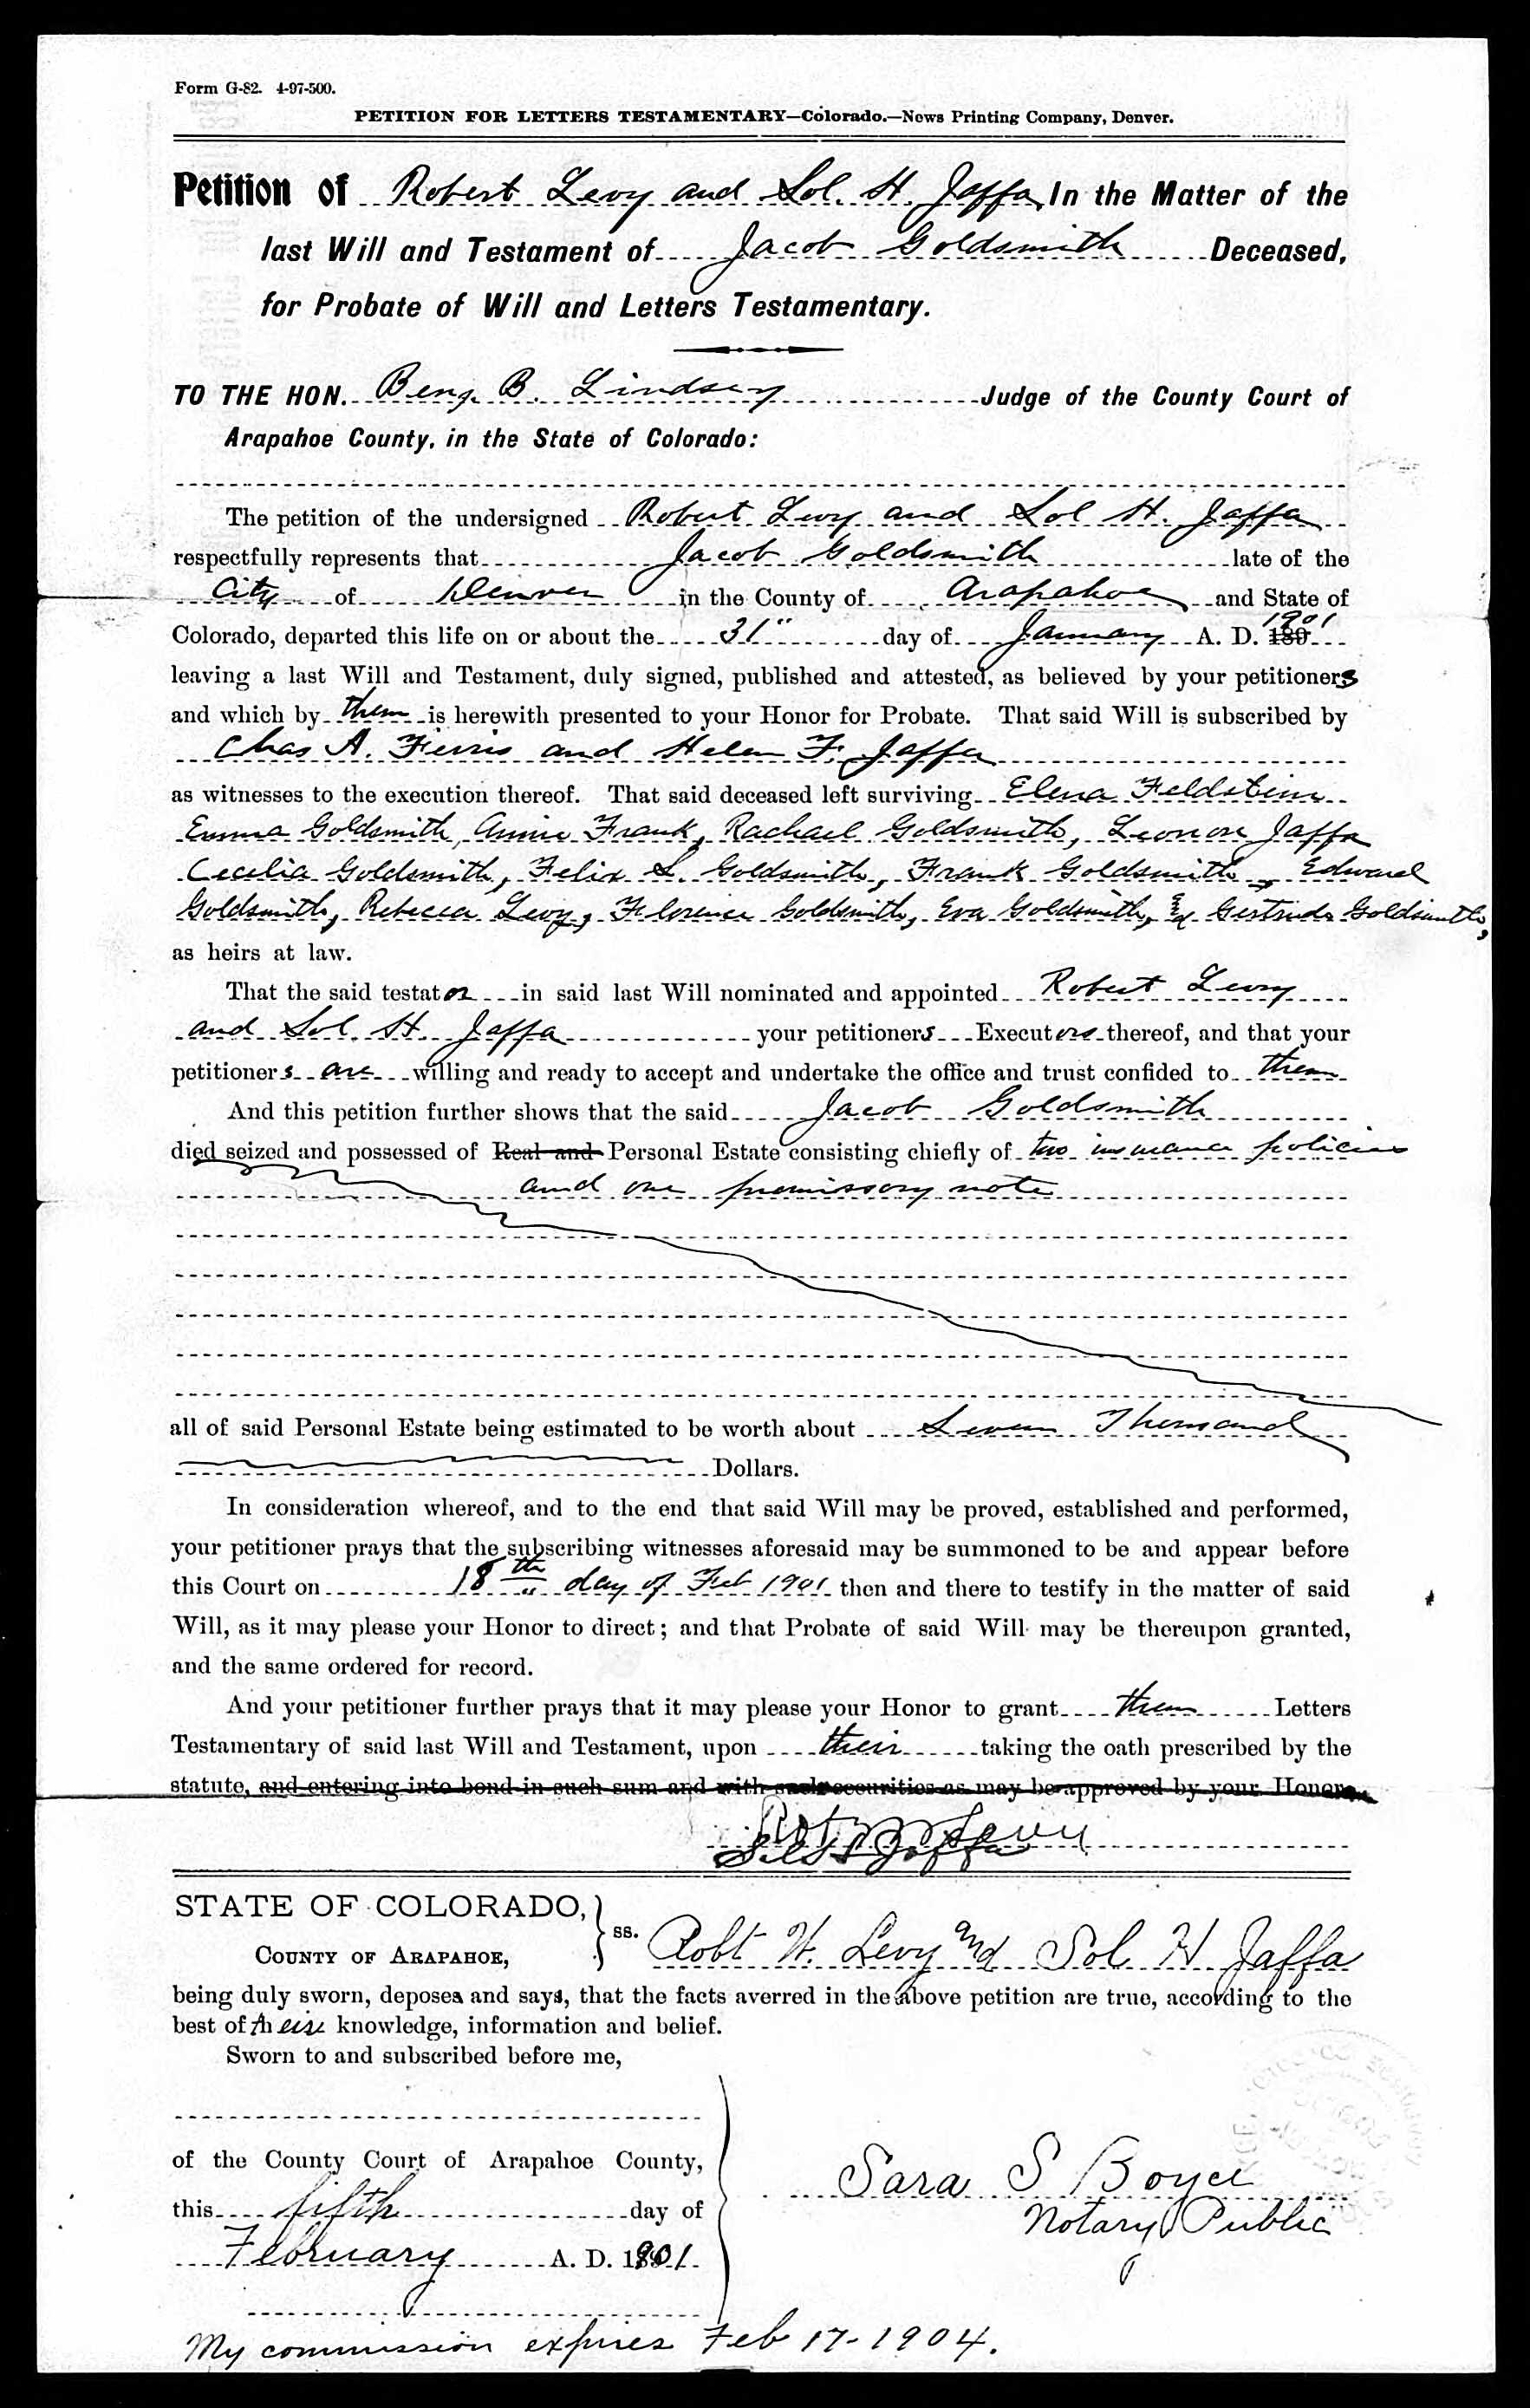 Form G-82. 4-97-500.
PETITION FOR LETTERS TESTAMENTARY—Colorado.—News Printing Company, Denver.
Petition of Robert Levy and Sol. H. Jaffa, In the Matter of the
last Will and Testament of Jacob Goldsmith Deceased,
for Probate of Will and Letters Testamentary.
TO THE HON. Benj. B. Lindsey Judge of the County Court of
Arapahoe County, in the State of Colorado:
The petition of the undersigned Robert Levy and Sol H. Jaffa
respectfully represents that Jacob Goldsmith late of the
City of Denver in the County of Arapahoe and State of
Colorado, departed this life on or about the 31" day of January A. D. 189 1901
leaving a last Will and Testament, duly signed, published and attested, as believed by your petitioners
and which by them is herewith presented to your Honor for Probate. That said Will is subscribed by
Chas A. Ferris and Helen F. Jaffa
as witnesses to the execution thereof. That said deceased left surviving Elena Feldstein
Emma Goldsmith, Annie Frank, Rachael Goldsmith, Leonore Jaffa
Cecelia Goldsmith, Felix S. Goldsmith, Frank Goldsmith, Edward
Goldsmith, Rebecca Levy, Florence Goldsmith, Eva Goldsmith, & Gertrude Goldsmith,
as heirs at law.
That the said testator in said last Will nominated and appointed Robert Levy
and Sol. H. Jaffa your petitioners Executors thereof, and that your
petitioners are willing and ready to accept and undertake the office and trust confided to them
And this petition further shows that the said Jacob Goldsmith
died seized and possessed of Real and Personal Estate consisting chiefly of two insurance policies
and one promissory note
all of said Personal Estate being estimated to be worth about Seven Thousand
Dollars.
In consideration whereof, and to the end that said Will may be proved, established and performed,
your petitioner prays that the subscribing witnesses aforesaid may be summoned to be and appear before
this Court on 18th day of Feb 1901 then and there to testify in the matter of said
Will, as it may please your Honor to direct; and that Probate of said Will may be thereupon granted,
and the same ordered for record.
And your petitioner further prays that it may please your Honor to grant them Letters
Testamentary of said last Will and Testament, upon their taking the oath prescribed by the
statute, and entering into bond in such sum and with such securities as may be approved by your Honor.
Robt W Levy
Sol H Jaffa
STATE OF COLORADO,
COUNTY OF ARAPAHOE, } ss. Robt W. Levy and Sol H Jaffa
being duly sworn, depose and say, that the facts averred in the above petition are true, according to the
best of their knowledge, information and belief.
Sworn to and subscribed before me,
of the County Court of Arapahoe County,
this fifth day of
February A. D. 1901
Sara S Boyce
Notary Public
My commission expires Feb 17-1904.